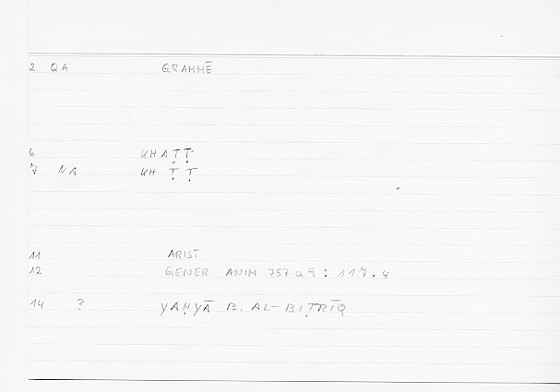 2 QA GRAMMĒ
6 KHAṬṬ
7 NA KH ṬṬ
11 ARIST
12 GENER ANIM 757 a 9 : 117.4
14 ? YAḤYĀ B. AL-BIṬRĪQ